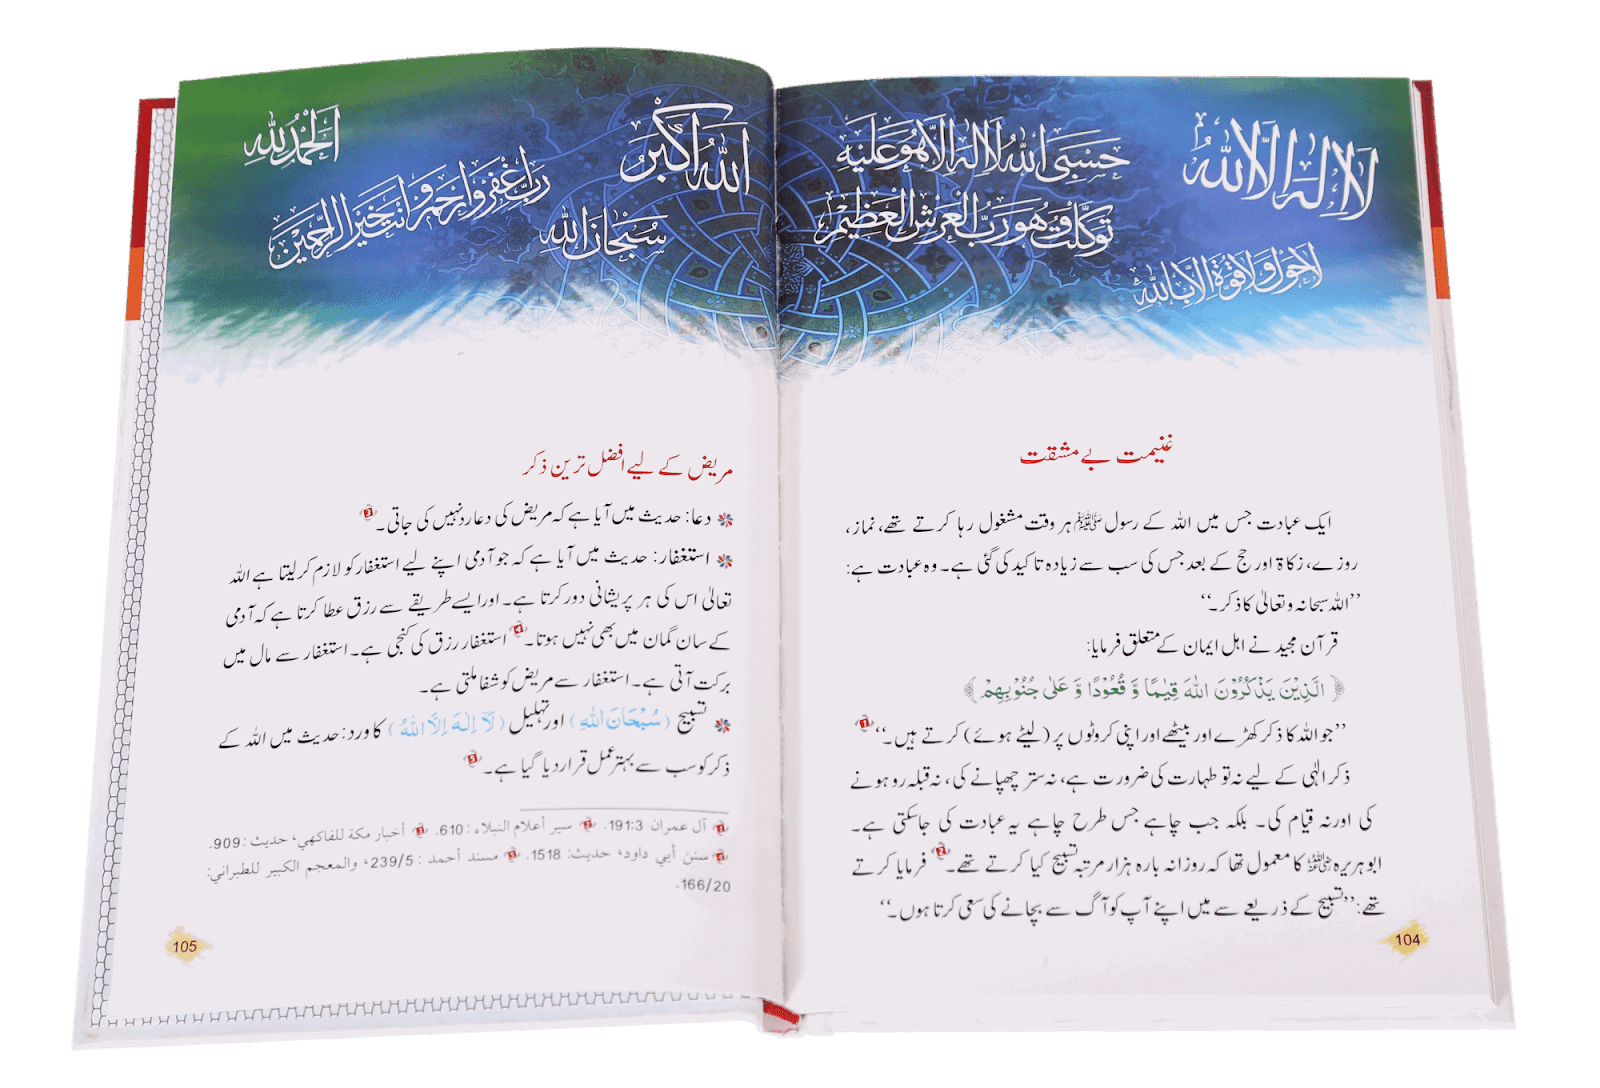 لا اله الا الله
حسبی الله لا اله الا هو علیه
توکلت وهو رب العرش العظیم
لا حول ولا قوة الا بالله
غنیمت بے مشقت
ایک عبادت جس میں اللہ کے رسول ﷺ ہر وقت مشغول رہا کرتے تھے، نماز،
روزے، زکاۃ اور حج کے بعد جس کی سب سے زیادہ تاکید کی گئی ہے۔ وہ عبادت ہے:
’’اللہ سبحانہ وتعالیٰ کا ذکر۔‘‘
قرآن مجید نے اہل ایمان کے متعلق فرمایا:
﴿الَّذِیْنَ یَذْكُرُوْنَ اللهَ قِیٰمًا وَّ قُعُوْدًا وَّ عَلٰی جُنُوْبِهِمْ﴾
’’جو اللہ کا ذکر کھڑے اور بیٹھے اور اپنی کروٹوں پر (لیٹے ہوئے) کرتے ہیں۔‘‘ 1
ذکر الٰہی کے لیے نہ تو طہارت کی ضرورت ہے، نہ ستر چھپانے کی، نہ قبلہ رو ہونے
کی اور نہ قیام کی۔ بلکہ جب چاہے جس طرح چاہے یہ عبادت کی جاسکتی ہے۔
ابوہریرہ رضی اللہ عنہ کا معمول تھا کہ روزانہ بارہ ہزار مرتبہ تسبیح کیا کرتے تھے۔ 2 فرمایا کرتے
تھے: ’’تسبیح کے ذریعے سے میں اپنے آپ کو آگ سے بچانے کی سعی کرتا ہوں۔‘‘
104
الله اكبر
سبحان الله
رب اغفر وارحم وانت خير الراحمين
الحمد لله
مریض کے لیے افضل ترین ذکر
دعا: حدیث میں آیا ہے کہ مریض کی دعا رد نہیں کی جاتی۔ 3
استغفار: حدیث میں آیا ہے کہ جو آدمی اپنے لیے استغفار کو لازم کر لیتا ہے اللہ
تعالیٰ اس کی ہر پریشانی دور کرتا ہے۔ اور ایسے طریقے سے رزق عطا کرتا ہے کہ آدمی
کے سان گمان میں بھی نہیں ہوتا۔ 4 استغفار رزق کی کنجی ہے۔ استغفار سے مال میں
برکت آتی ہے۔ استغفار سے مریض کو شفا ملتی ہے۔
تسبیح (سُبْحَانَ اللهِ) اور تہلیل (لَآ اِلٰهَ اِلَّا اللهُ) کا ورد: حدیث میں اللہ کے
ذکر کو سب سے بہتر عمل قرار دیا گیا ہے۔ 5
1 آل عمران 191:3. 2 سير أعلام النبلاء : 610. 3 أخبار مكة للفاكهي، حديث: 909.
4 سنن أبي داود، حديث: 1518. 5 مسند أحمد : 239/5، والمعجم الكبير للطبراني:
166/20.
105